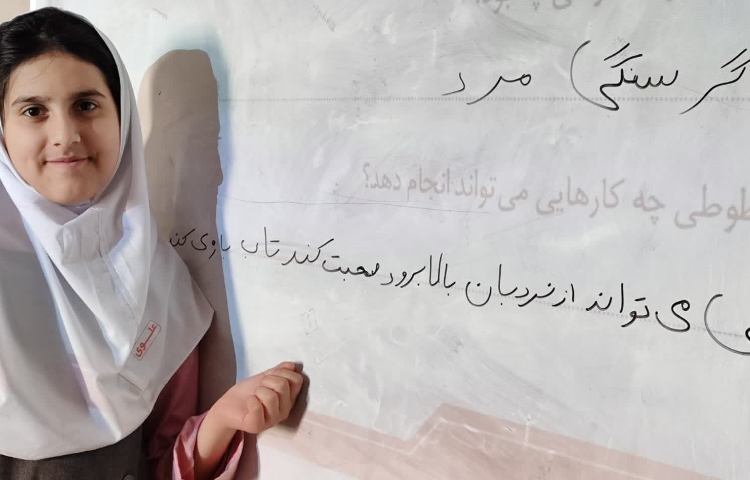 گر سنگی) مرد
طوطی چه کارهایی می تواند انجام دهد؟
می تواند از نردبان بالا برود صحبت کند تاب بازی کند
علوی